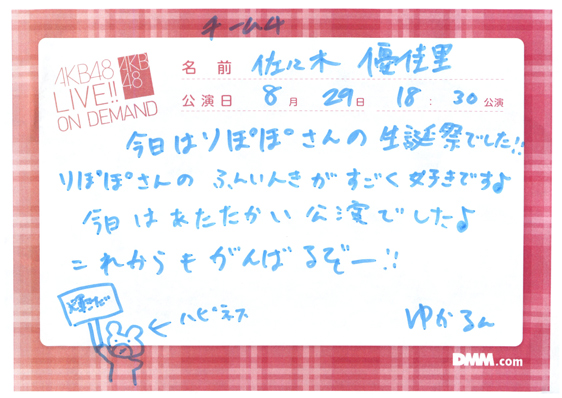 チーム4
AKB48
LIVE!!
ON DEMAND
AKB
48
名前 佐々木 優佳里
公演日 8月 29日 18:30公演
今日はりぽぽさんの生誕祭でした!!
りぽぽさんの ふんいんきが すごく 好きです♪
今日は あたたかい 公演でした♪
これからも がんばるぞー!!
ハピネス
ゆかるん
DMM.com